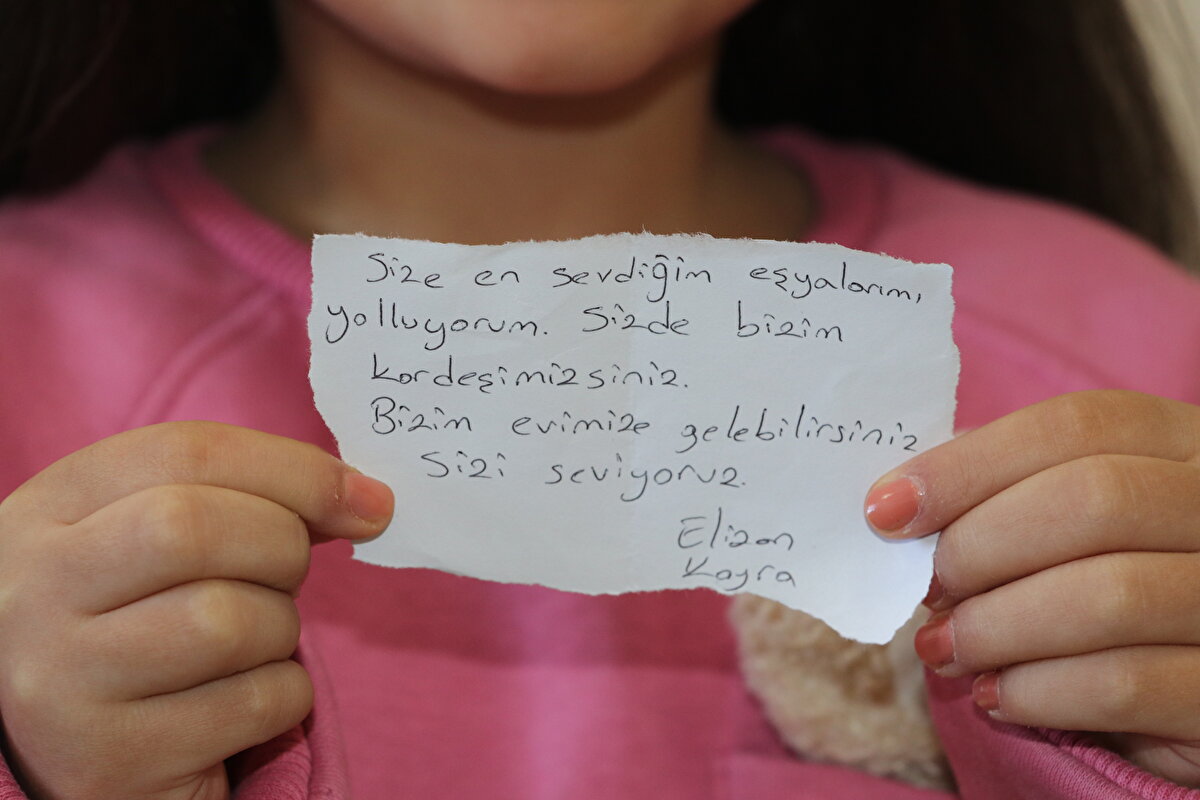 Size en sevdiğim eşyalarımı
yolluyorum. Sizde bizim
kardeşimizsiniz.
Bizim evimize gelebilirsiniz
Sizi seviyoruz.
Elizan
Kayra